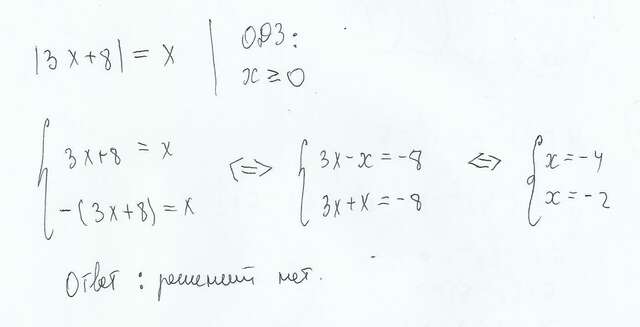 |3x+8| = x | ОДЗ:
x ≥ 0
{ 3x+8 = x <=> { 3x-x = -8 <=> { x = -4
-(3x+8) = x 3x+x = -8 x = -2
Ответ : решений нет.